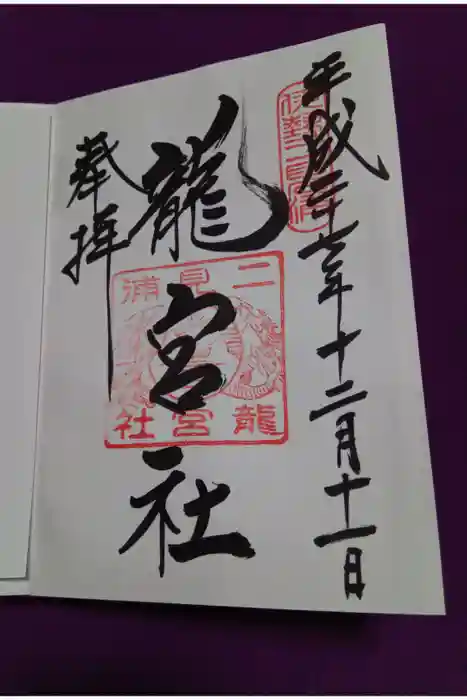 平成二十六年十二月十一日
伊勢二見浦
龍宮社
二見浦
龍宮社
奉拝